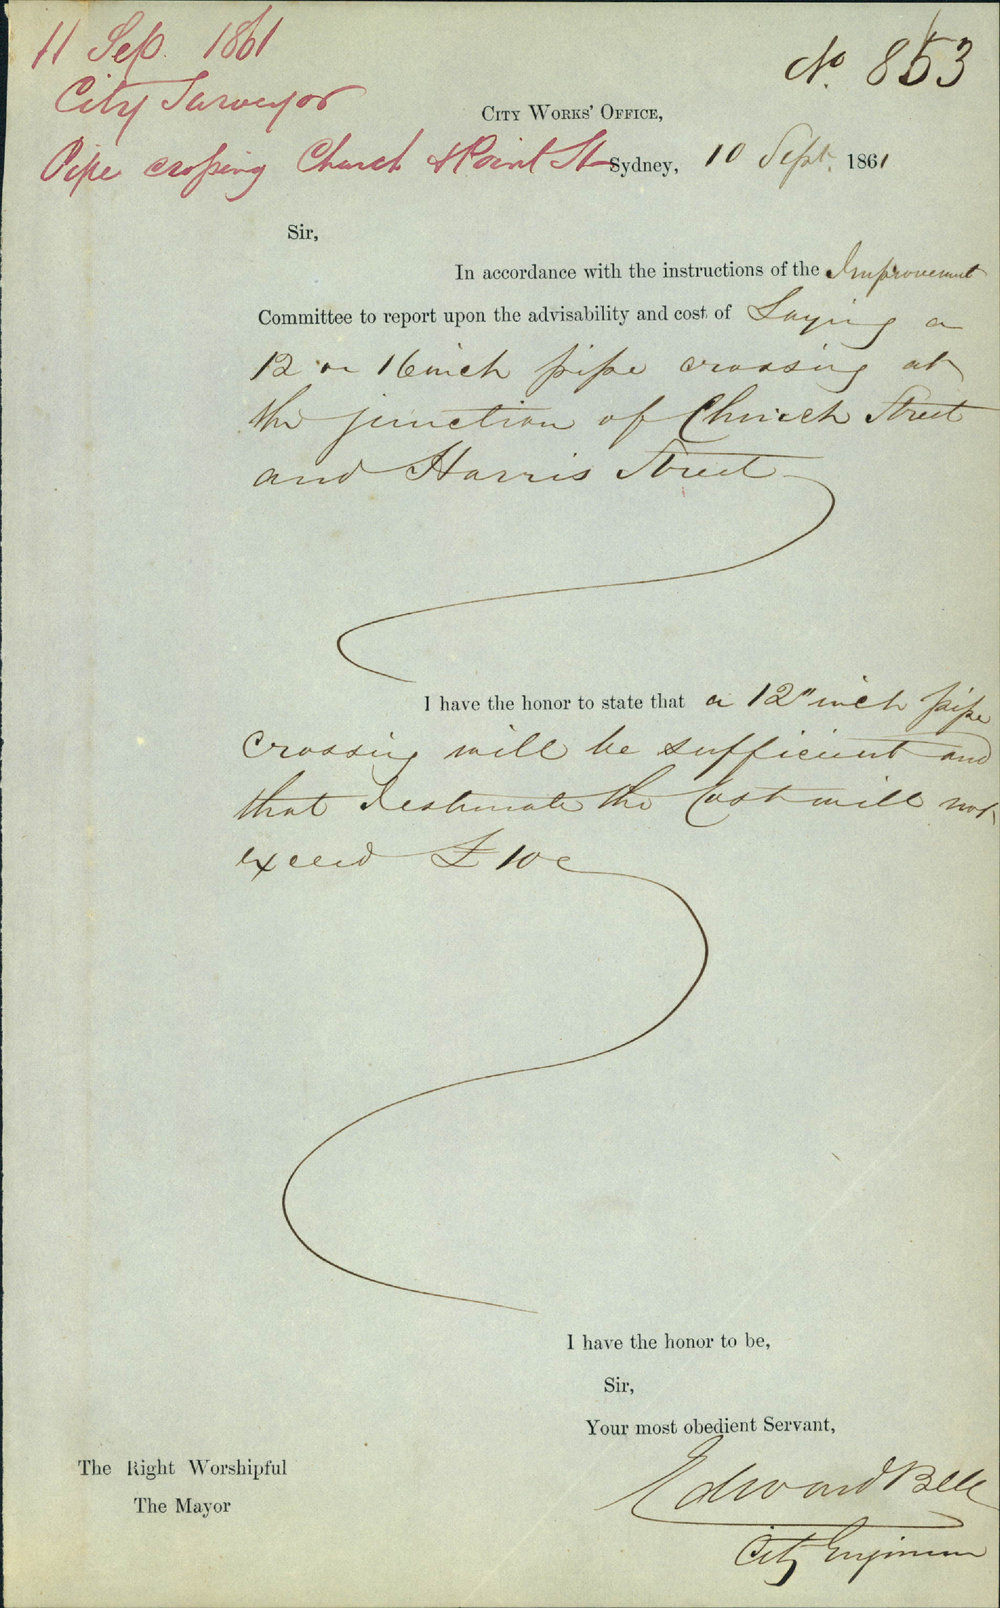 11 Sep. 1861
No. 853
City Surveyor
City Works' Office,
Pipe crossing Church & Point St
Sydney, 10 Sept. 1861
Sir,
In accordance with the instructions of the Improvement
Committee to report upon the advisability and cost of Laying a
12 or 16 inch pipe crossing at
the junction of Church Street
and Harris Street
I have the honor to state that a 12" inch pipe
crossing will be sufficient and
that I estimate the Cost will not
exceed £10
I have the honor to be,
Sir,
Your most obedient Servant,
The Right Worshipful
The Mayor
Edward Bell
City Engineer